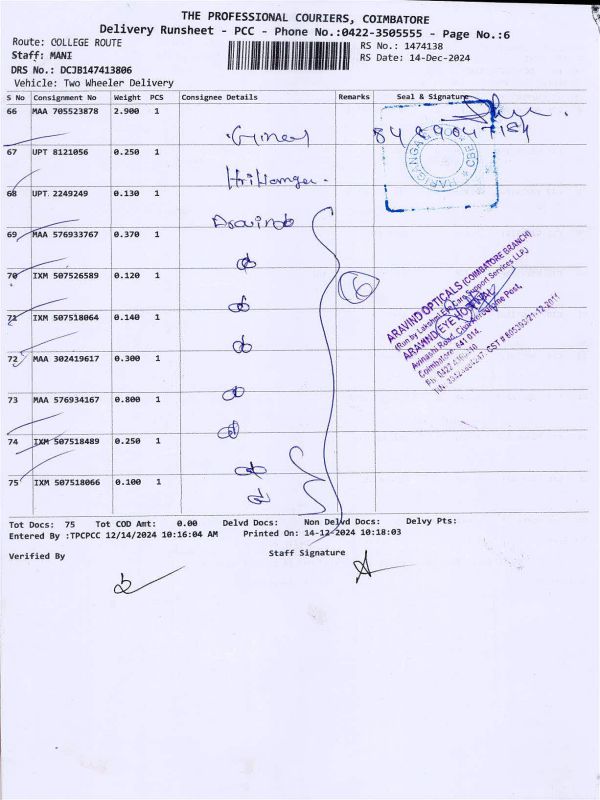 THE PROFESSIONAL COURIERS, COIMBATORE
Delivery Runsheet - PCC - Phone No.:0422-3505555 - Page No.:6
Route: COLLEGE ROUTE
Staff: MANI
DRS No.: DCJB147413806
Vehicle: Two Wheeler Delivery
RS No.: 1474138
RS Date: 14-Dec-2024
S No Consignment No Weight PCS Consignee Details Remarks Seal & Signature
66 MAA 705523878 2.900 1
67 UPT 8121056 0.250 1
68 UPT 2249249 0.130 1
69 MAA 576933767 0.370 1
70 IXM 507526589 0.120 1
71 IXM 507518064 0.140 1
72 MAA 302419617 0.300 1
73 MAA 576934167 0.800 1
74 IXM 507518489 0.250 1
75 IXM 507518066 0.100 1
Aravind
6
ARAVIND OPTICALS (COIMBATORE BRANCH)
(Run by Lakshmi Eye Care Support Services LLP.)
ARAVIND EYE HOSPITAL
Avinashi Road, Post,
Coimbatore- 641 014.
Tot Docs: 75 Tot COD Amt: 0.00 Delvd Docs: Non Delvd Docs: Delvy Pts:
Entered By :TPCPCC 12/14/2024 10:16:04 AM Printed On: 14-12-2024 10:18:03
Verified By
Staff Signature